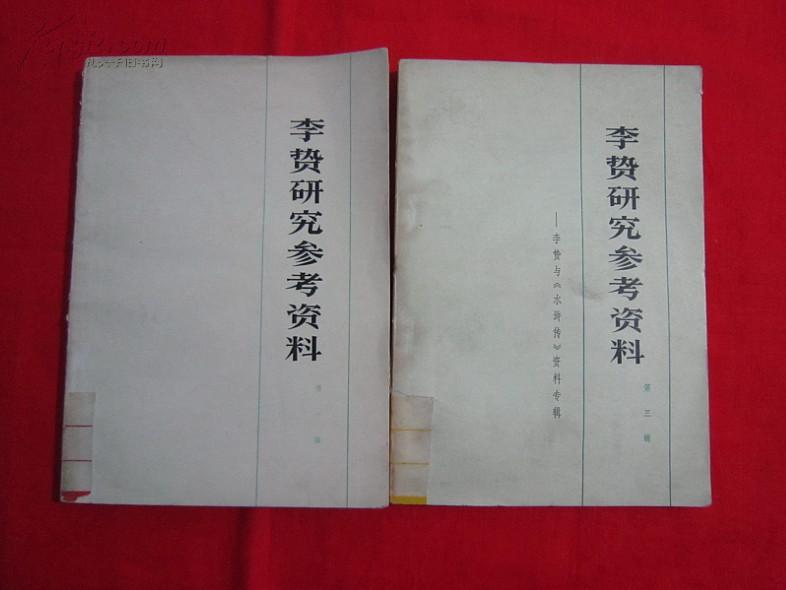 李贽研究参考资料
李贽研究参考资料
第三辑
——李贽与《水浒传》资料专辑
孔夫子旧书网